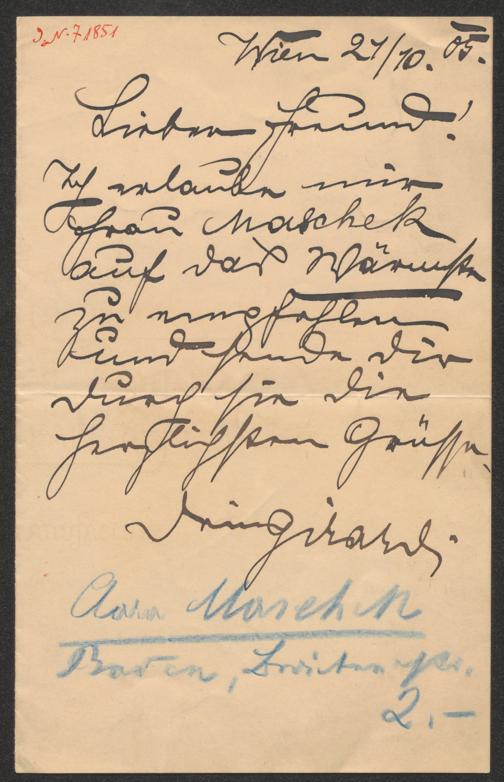 J. N. 71851
Wien 21/10. 05.
Lieber Freund!
Ich erlaube mir
Frau Maschek
auf das Wärmste
zu empfehlen
und sende dir
durch sie die
herzlichsten Grüsse.
Dein Girardi
Maschek
Baden,
2.-